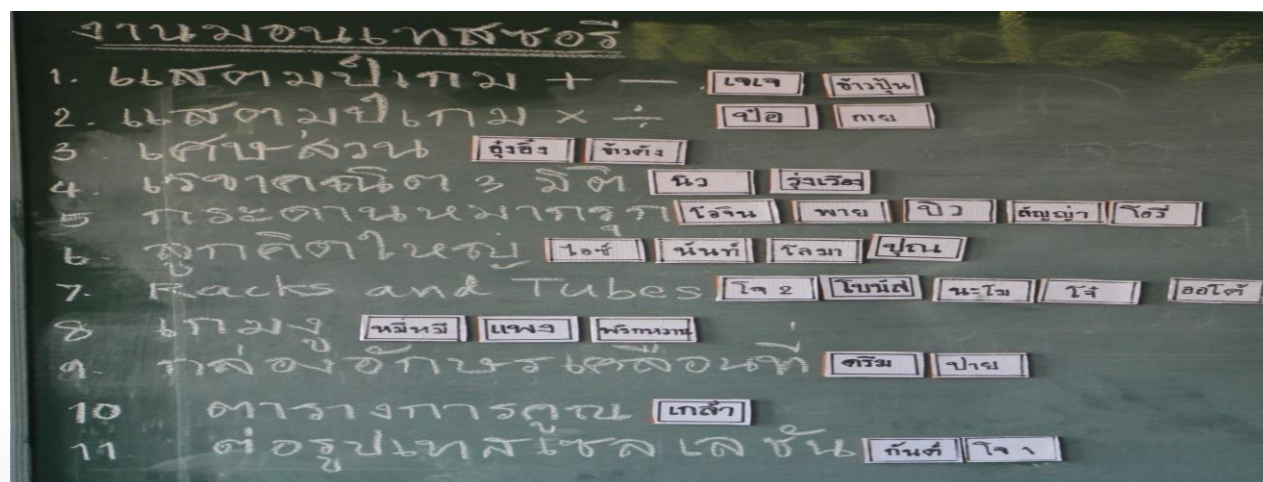 งานมอนเทสซอรี Monday
1. แสตมป์เกม + - เจเจ ข้าวปุ้น
2. แสตมป์เกม × ÷ ป้อ กาย
3. เศษส่วน อุ๋งอิ๋ง ข้าวตัง
4. เรขาคณิต 3 มิติ นิว รุ่งเรือง
5 กระดานหมากรุก โอจิน พาย ปิว สัญญ่า โอวี
6 ลูกคิดใหญ่ ไอซ์ นันท์ โลมา ปุณ
7. Racks and Tubes โจ 2 โบนัส นะโม โจ๋ ออโต้
8 เกมงู หมีหมี แพง พริกหวาน
9. กล่องอักษรเคลื่อนที่ ครีม ปาย
10 ตารางการคูณ เกล้า
11 ต่อรูปเทสเซลเลชัน กันต์ โจ 1